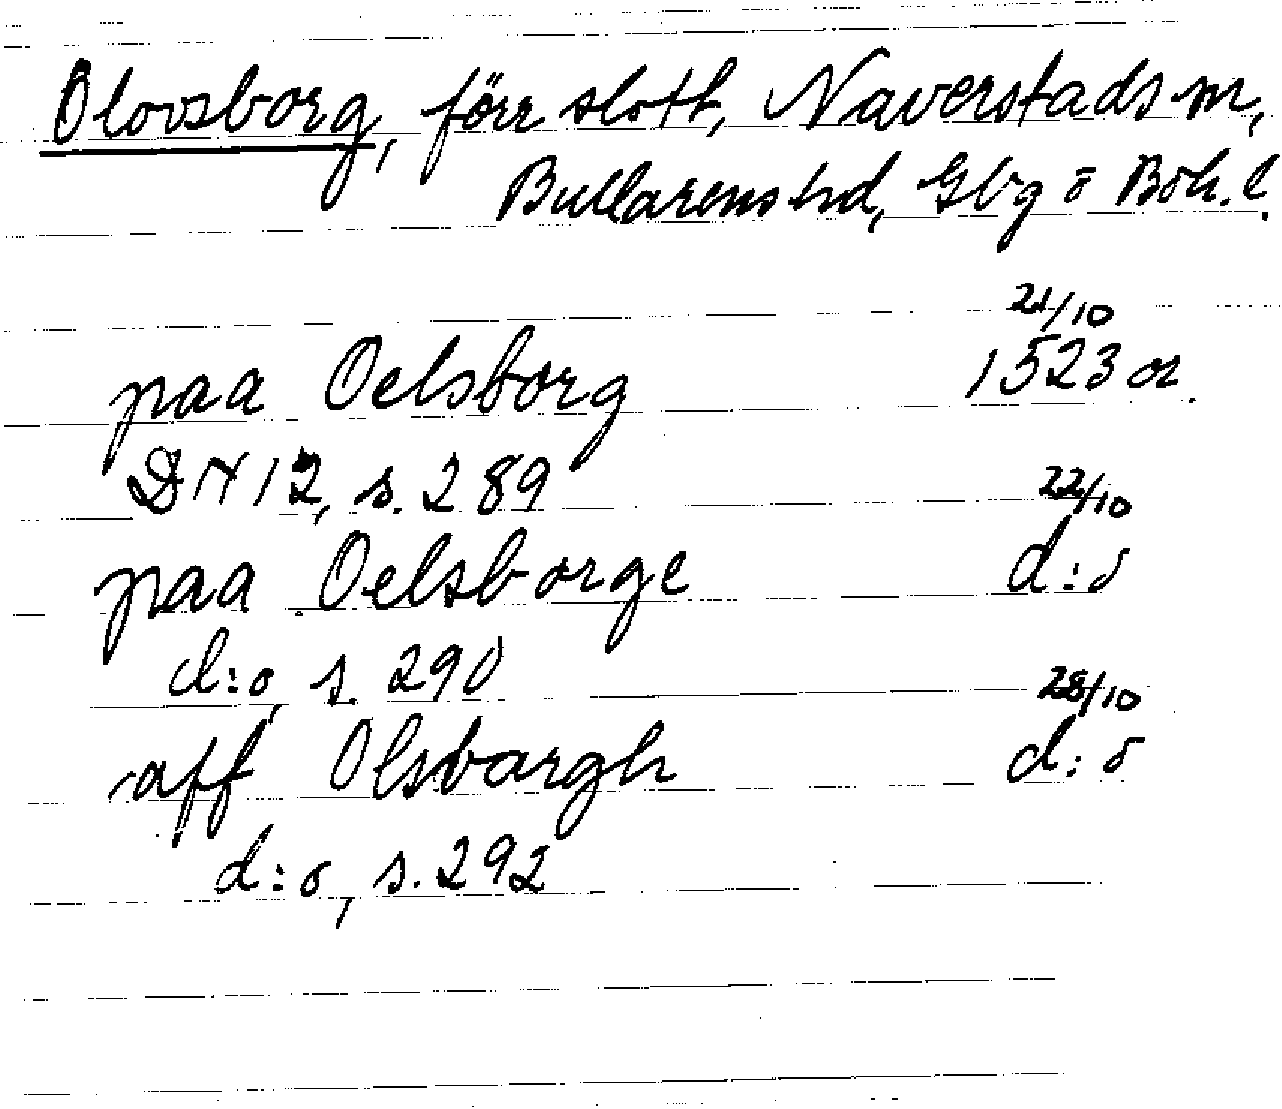 Olovsborg, förr slott, Naverstads sn,
Bullarens hd, Gbg o Boh. l.
21/10
paa Oelsborg 1523 or.
DN 12, s. 289
22/10
paa Oelsborge d:o
d:o, s. 290
28/10
aff Olsbargh d:o
d:o, s. 292